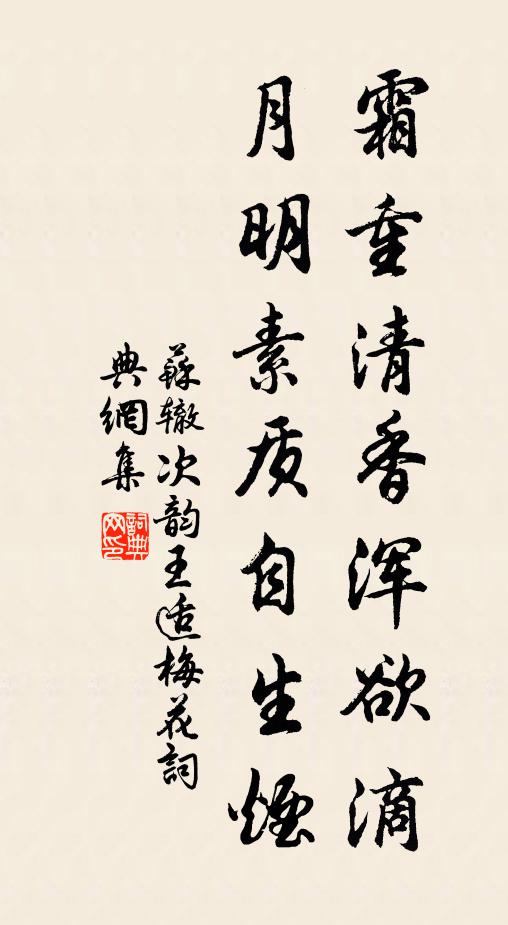 霜重清香浑欲滴
月明素质自生烟
蘇辙次韵王适梅花詞
典網集
詞典网印